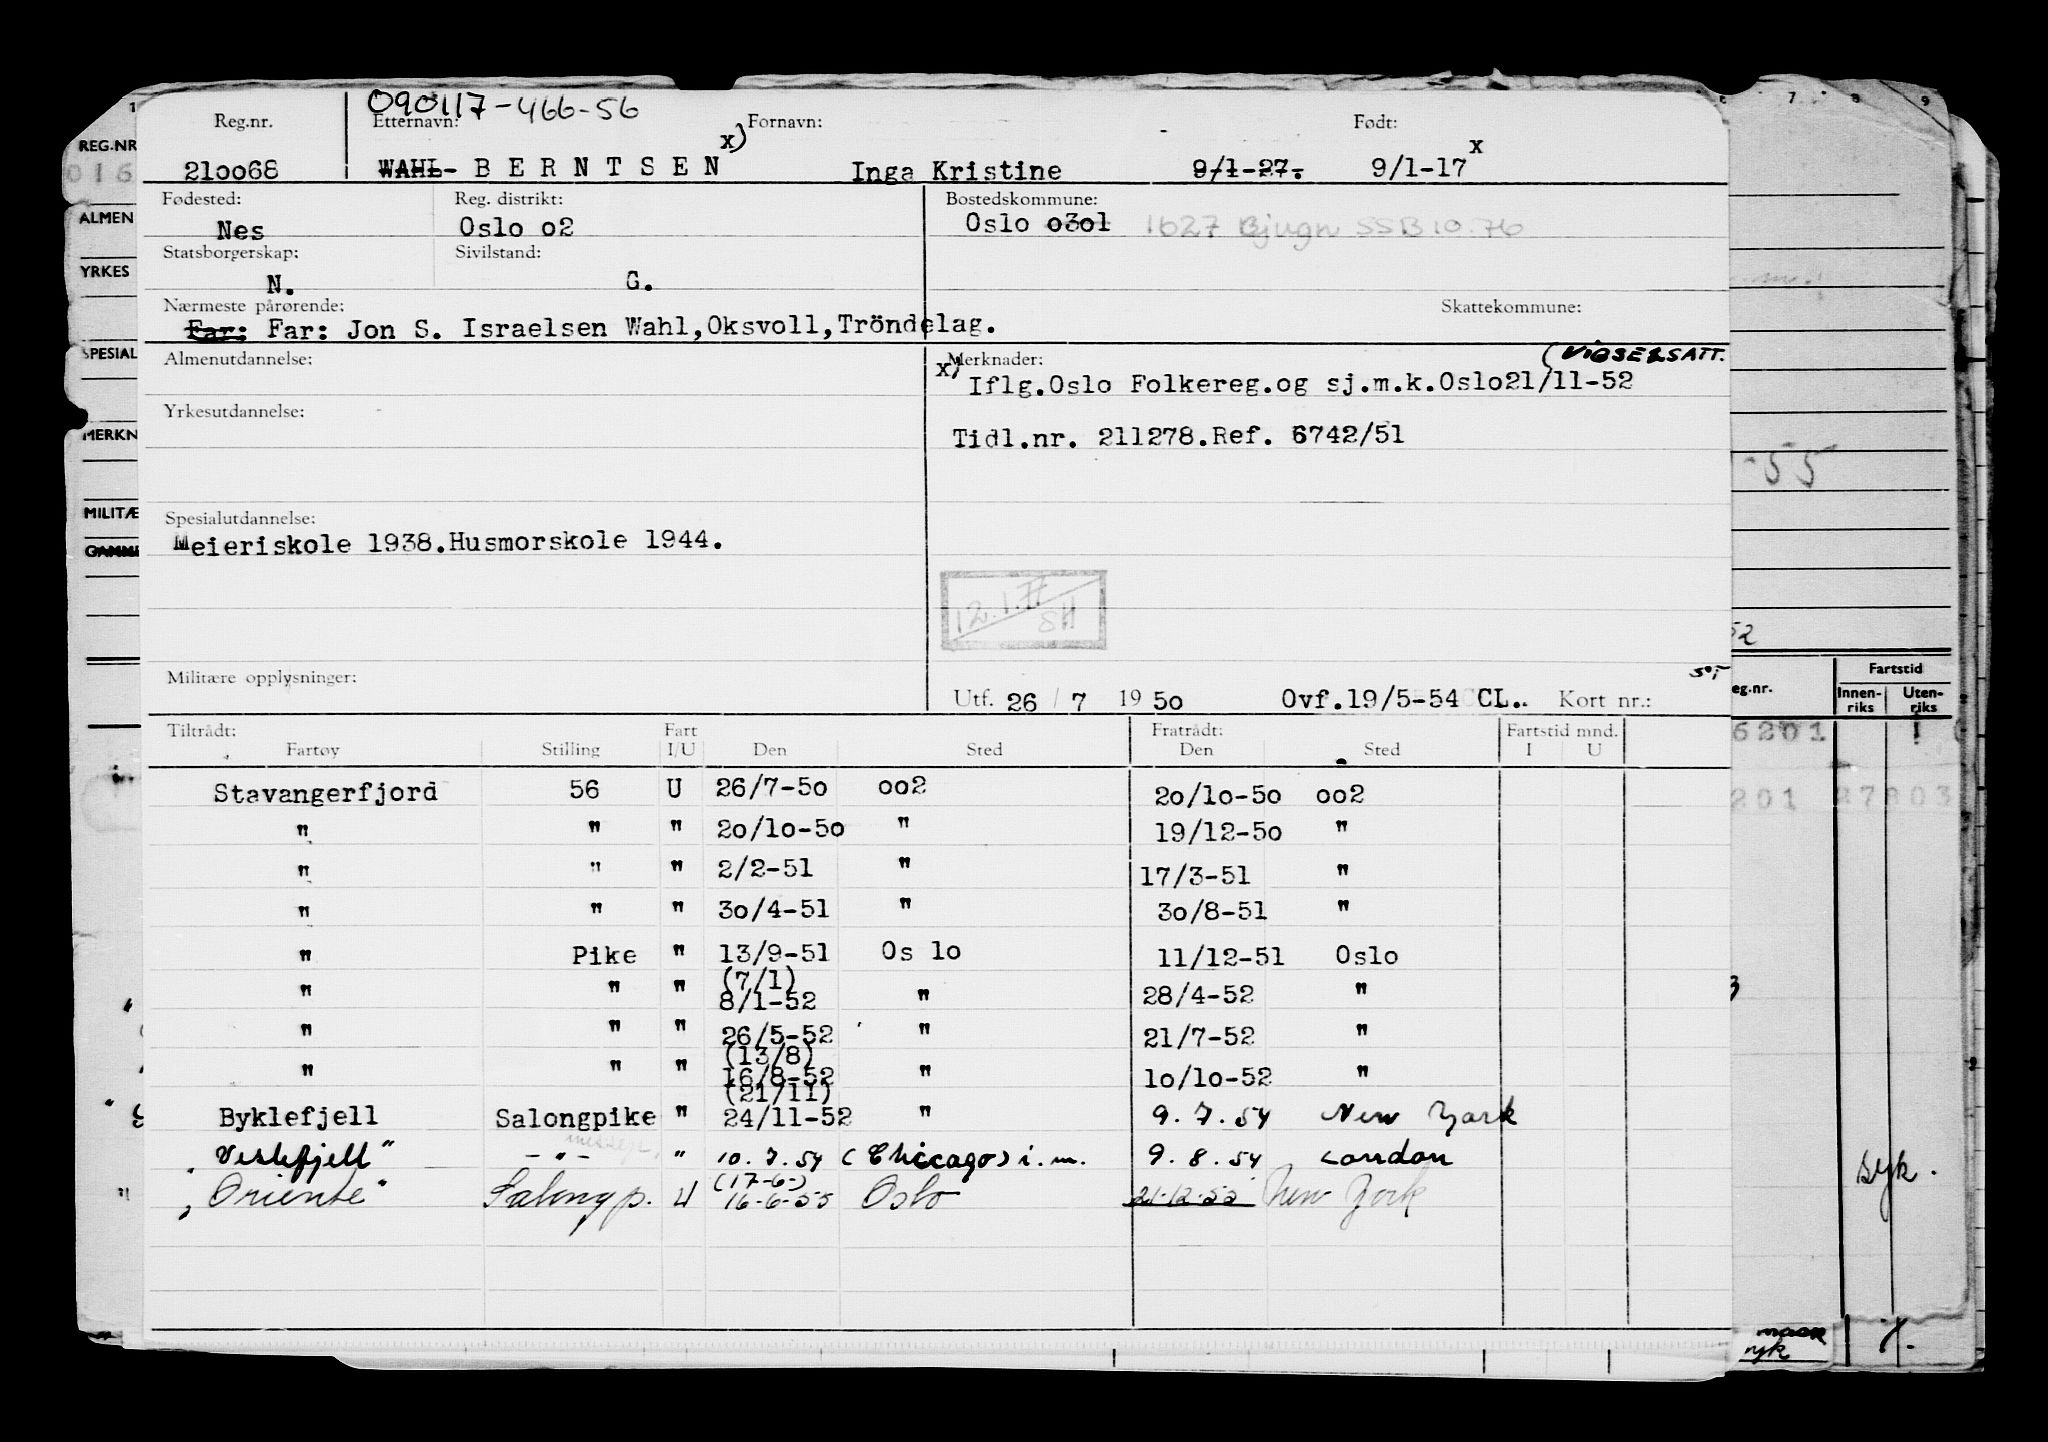 090117-466-56
Reg.nr. Etternavn: Fornavn: Født:
210068 WAHL- BERNTSEN x) Inga Kristine 9/1-27. 9/1-17 x
Fødested: Reg. distrikt: Bostedskommune:
Nes Oslo o2 Oslo o3ol 1627 Bjugn SSB 10.76
Statsborgerskap: Sivilstand:
N. G.
Nærmeste pårørende: Skattekommune:
Far: Far: Jon S. Israelsen Wahl,Oksvoll,Tröndelag.
Almenutdannelse: Merknader: (VIGSELSATT.
x) Iflg.Oslo Folkereg.og sj.m.k.Oslo21/11-52
Yrkesutdannelse:
Tidl.nr. 211278.Ref. 6742/51
Spesialutdannelse:
Meieriskole 1938.Husmorskole 1944.
SH
Militære opplysninger:
Utf. 26 / 7 19 50 Ovf.19/5-54 CL.. Kort nr.:
Tiltrådt: Fart Fratrådt: Fartstid mnd.
Fartøy Stilling I/U Den Sted Den Sted I U
Stavangerfjord 56 U 26/7-50 oo2 20/10-50 oo2
" " " 20/10-50 " 19/12-50 "
" " " 2/2-51 " 17/3-51 "
" " " 30/4-51 " 30/8-51 "
" Pike " 13/9-51 Os lo 11/12-51 Oslo
(7/1)
" " " 8/1-52 " 28/4-52 "
" " " 26/5-52 " 21/7-52 "
(13/8)
" " " 16/8-52 " 10/10-52 "
(21/11)
Byklefjell Salongpike " 24/11-52 " 9.7.54 New York
"Veslefjell" -"- " 10.7.54 (Chicago) i.m. 9.8.54 London
(17-6-)
"Oriente" Salongp. U 16-6-55 Oslo 21-12-55 New York
REG.NR
016
ALMEN
YRKES
SPESIAL
MERKN
MILITÆ
GAMME
7 8 9
-55
52
eg.nr. Fartstid
Innen-riks Uten-riks
6201 1
201 27803
syk.